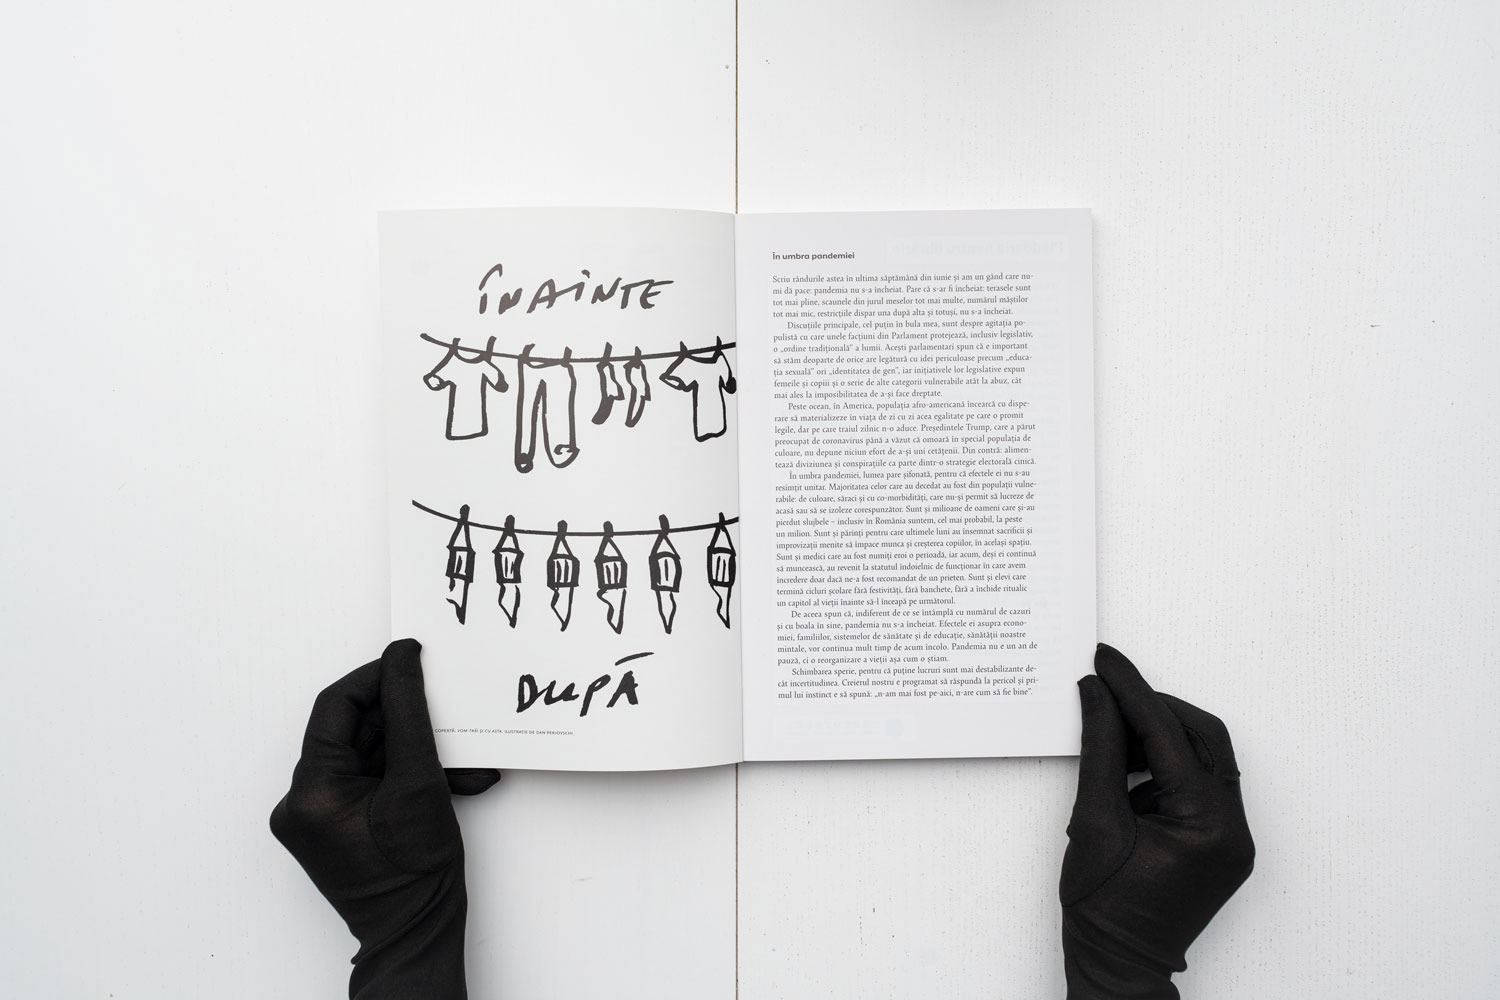 ÎNAINTE
DUPĂ
COPERTĂ: VOM TRĂI ȘI CU ASTA. ILUSTRAȚIE DE DAN PERJOVSCHI.
În umbra pandemiei
Scriu rândurile astea în ultima săptămână din iunie și am un gând care nu-
mi dă pace: pandemia nu s-a încheiat. Pare că s-ar fi încheiat: terasele sunt
tot mai pline, scaunele din jurul meselor tot mai multe, numărul măștilor
tot mai mic, restricțiile dispar una după alta și totuși, nu s-a încheiat.
Discuțiile principale, cel puțin în bula mea, sunt despre agitația po-
pulistă cu care unele facțiuni din Parlament protejează, inclusiv legislativ,
o „ordine tradițională” a lumii. Acești parlamentari spun că e important
să stăm deoparte de orice are legătură cu idei periculoase precum „educa-
ția sexuală” ori „identitatea de gen”, iar inițiativele lor legislative expun
femeile și copiii și o serie de alte categorii vulnerabile atât la abuz, cât
mai ales la imposibilitatea de a-și face dreptate.
Peste ocean, în America, populația afro-americană încearcă cu dispe-
rare să materializeze în viața de zi cu zi acea egalitate pe care o promit
legile, dar pe care traiul zilnic n-o aduce. Președintele Trump, care a părut
preocupat de coronavirus până a văzut că omoară în special populația de
culoare, nu depune niciun efort de a-și uni cetățenii. Din contră: alimen-
tează diviziunea și conspirațiile ca parte dintr-o strategie electorală cinică.
În umbra pandemiei, lumea pare șifonată, pentru că efectele ei nu s-au
resimțit unitar. Majoritatea celor care au decedat au fost din populații vulne-
rabile: de culoare, săraci și cu co-morbidități, care nu-și permit să lucreze de
acasă sau să se izoleze corespunzător. Sunt și milioane de oameni care și-au
pierdut slujbele – inclusiv în România suntem, cel mai probabil, la peste
un milion. Sunt și părinți pentru care ultimele luni au însemnat sacrificii și
improvizații menite să împace munca și creșterea copiilor, în același spațiu.
Sunt și medici care au fost numiți eroi o perioadă, iar acum, deși ei continuă
să muncească, au revenit la statutul îndoielnic de funcționar în care avem
încredere doar dacă ne-a fost recomandat de un prieten. Sunt și elevi care
termină cicluri școlare fără festivități, fără banchete, fără a închide ritualic
un capitol al vieții înainte să-l înceapă pe următorul.
De aceea spun că, indiferent de ce se întâmplă cu numărul de cazuri
și cu boala în sine, pandemia nu s-a încheiat. Efectele ei asupra econo-
miei, familiilor, sistemelor de sănătate și de educație, sănătății noastre
mintale, vor continua mult timp de acum încolo. Pandemia nu e un an de
pauză, ci o reorganizare a vieții așa cum o știam.
Schimbarea sperie, pentru că puține lucruri sunt mai destabilizante de-
cât incertitudinea. Creierul nostru e programat să răspundă la pericol și pri-
mul lui instinct e să spună: „n-am mai fost pe-aici, n-are cum să fie bine”.